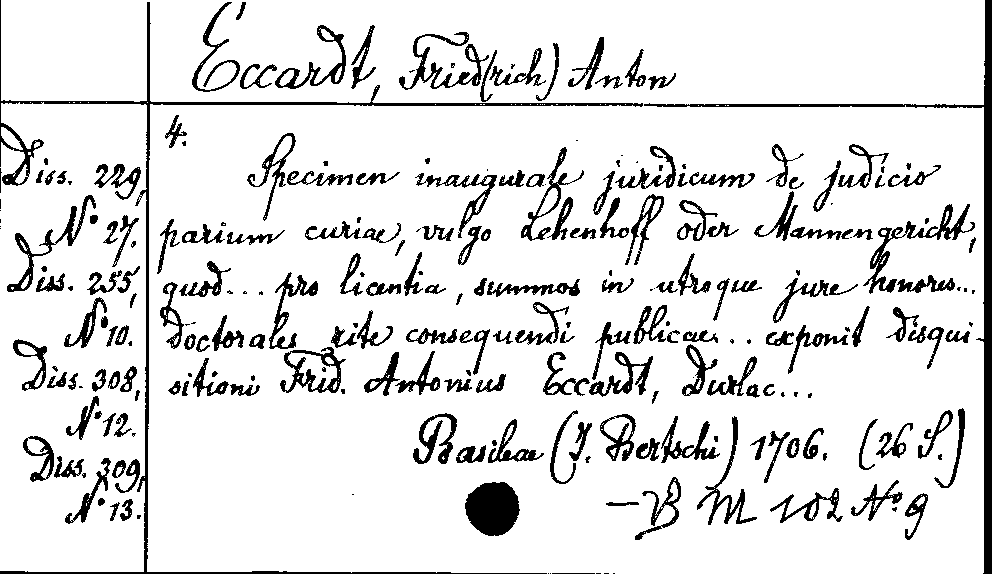 Eccardt, Fried(rich) Anton
4.
Diss. 229,
N° 27.
Diss. 255,
N° 10.
Diss. 308,
N° 12.
Diss. 309,
N° 13.
Specimen inaugurale juridicum de judicio
parium curiae, vulgo Lehenhoff oder Mannengericht,
quod... pro licentia, summos in utroque jure honores...
doctorales rite consequendi publicae... exponit disqui-
sitioni Frid. Antonius Eccardt, Durlac...
Basileae (J. Bertschi) 1706. (26 S.)
— B M 102 N° 9